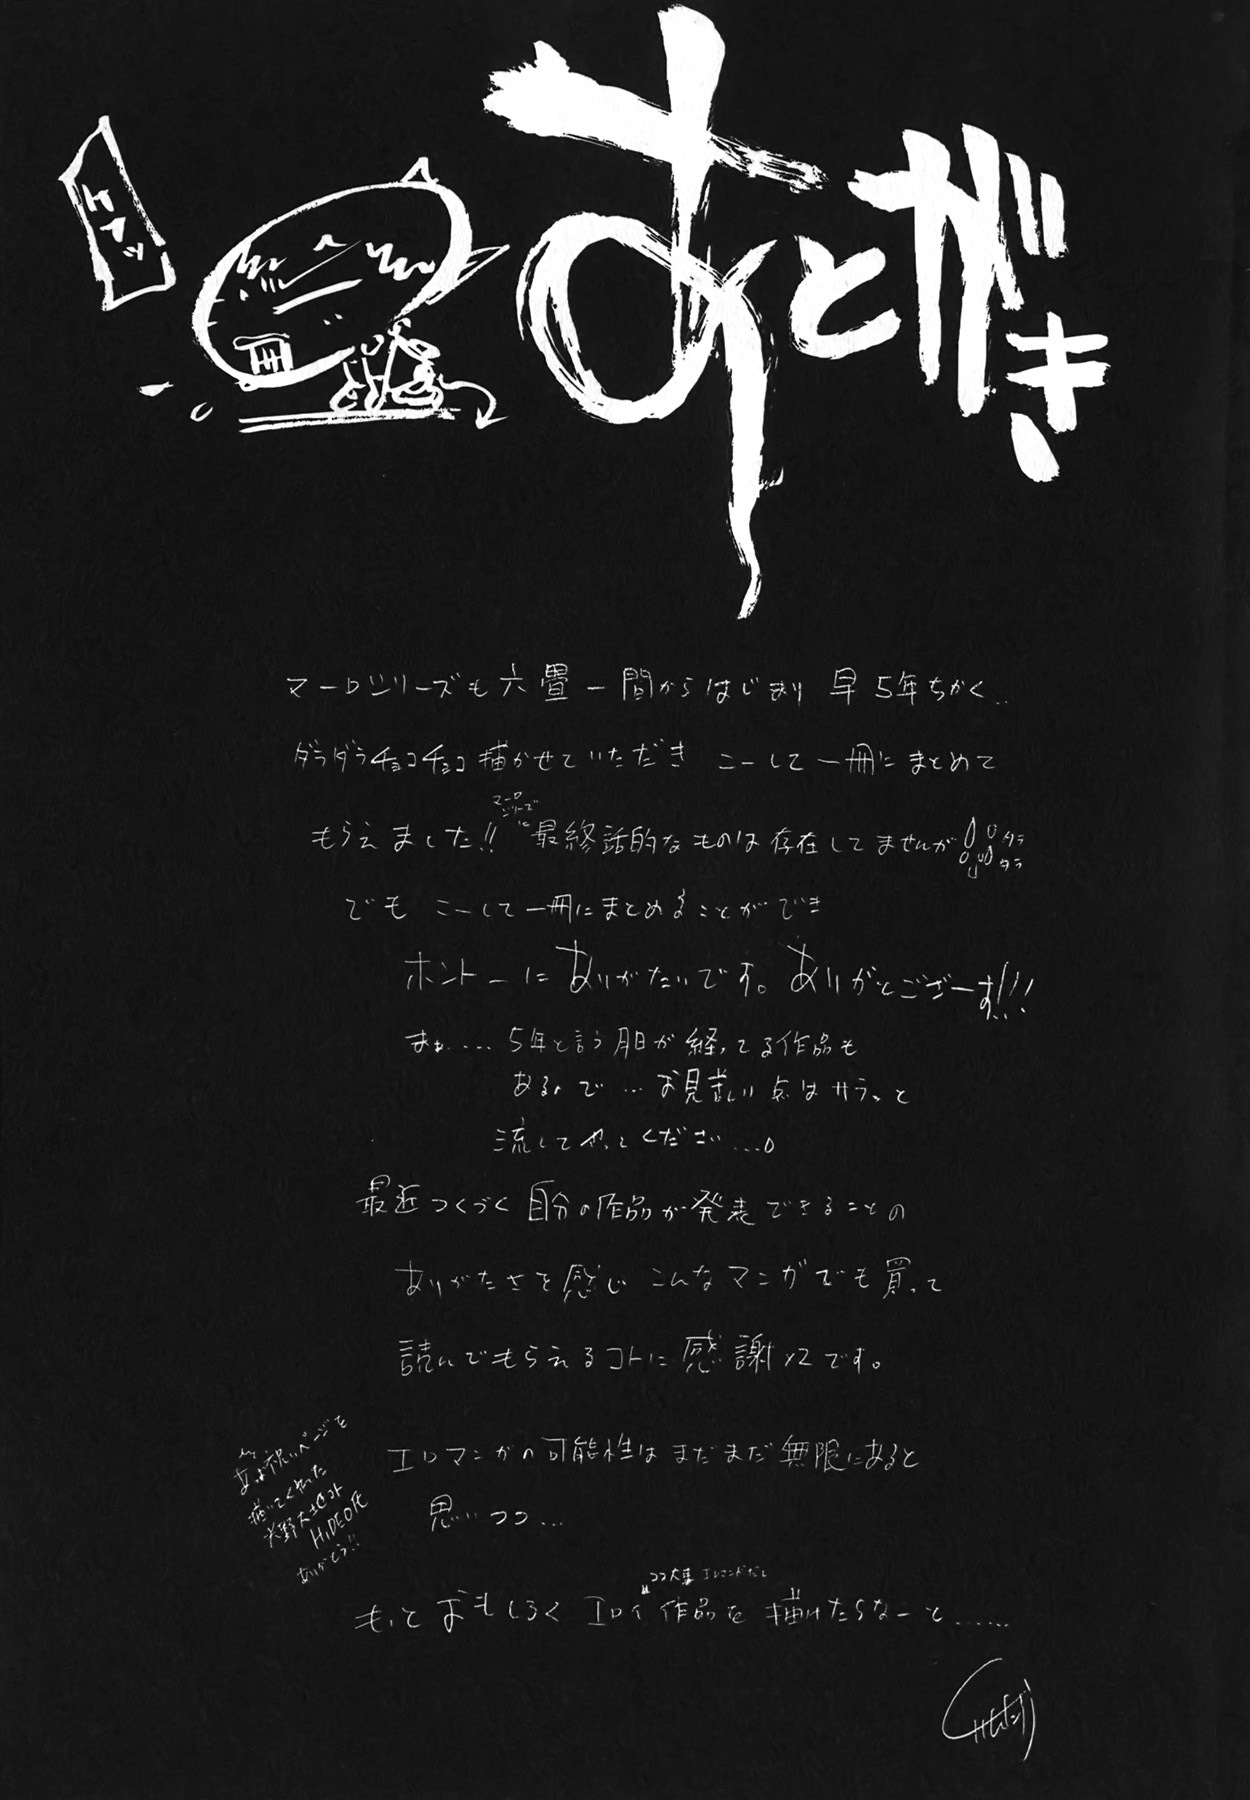 あとがき
マーロシリーズも六畳一間からはじまり 早5年ちかく..
ダラダラチョコチョコ描かせていただき こーして一冊にまとめて
マーロ
シリーズ
に
もらえました!! 最終話的なものは存在してませんが
タラ
タラ
でも こーして一冊にまとめることができ
ホントーにありがたいです。ありがとござーす!!!
まぁ.... 5年と言う月日が経ってる作品も
あるので...お見苦しい点はサラッと
流してやってください...
最近つくづく自分の作品が発表できることの
ありがたさを感じ こんなマンガでも買って
読んでもらえるコトに感謝×2です。
エロマンガの可能性はまだまだ無限にあると
思いつつ...
ココ大事 エロマンガだし
もっとおもしろくエロイ作品を描けたらなーと......
お祝いページを
描いてくれた
HIDEO氏
ありがとう!!